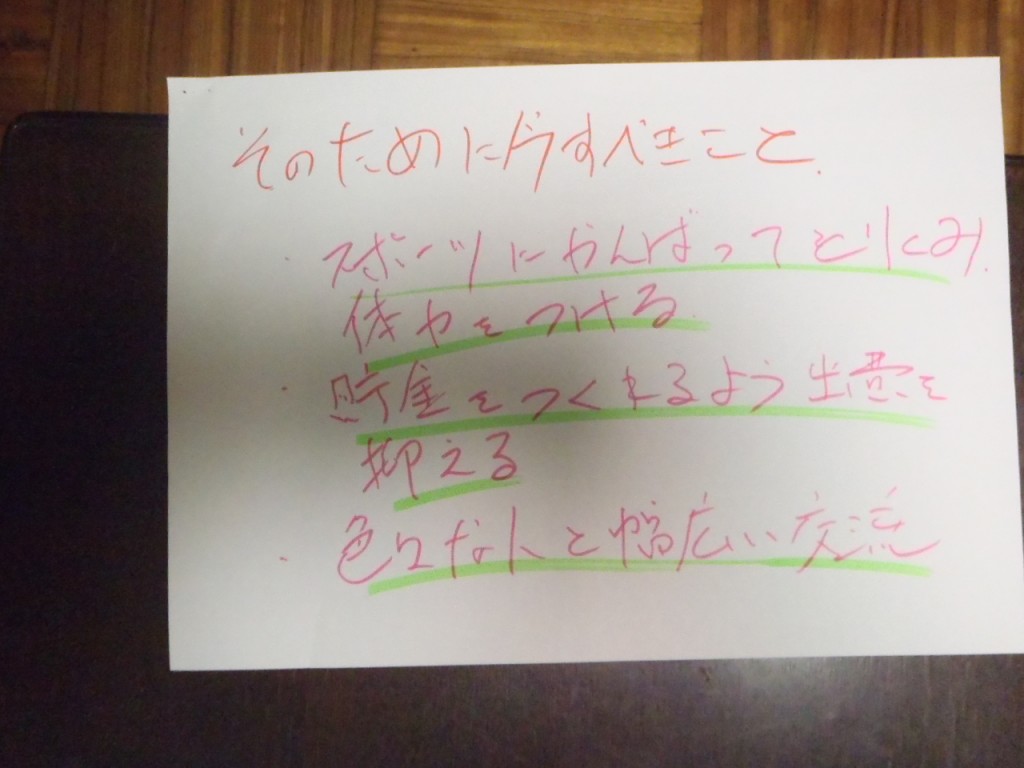 そのためにどうすべきこと.
・スポーツにがんばってとりくみ.
体力をつける.
・貯金をつくれるよう出費を
抑える
・色々な人と幅広い交流